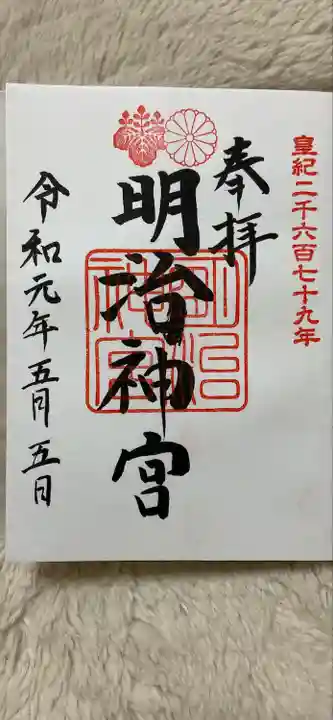 皇紀二千六百七十九年
奉拝
明治神宮
明治
神宮
令和元年五月五日